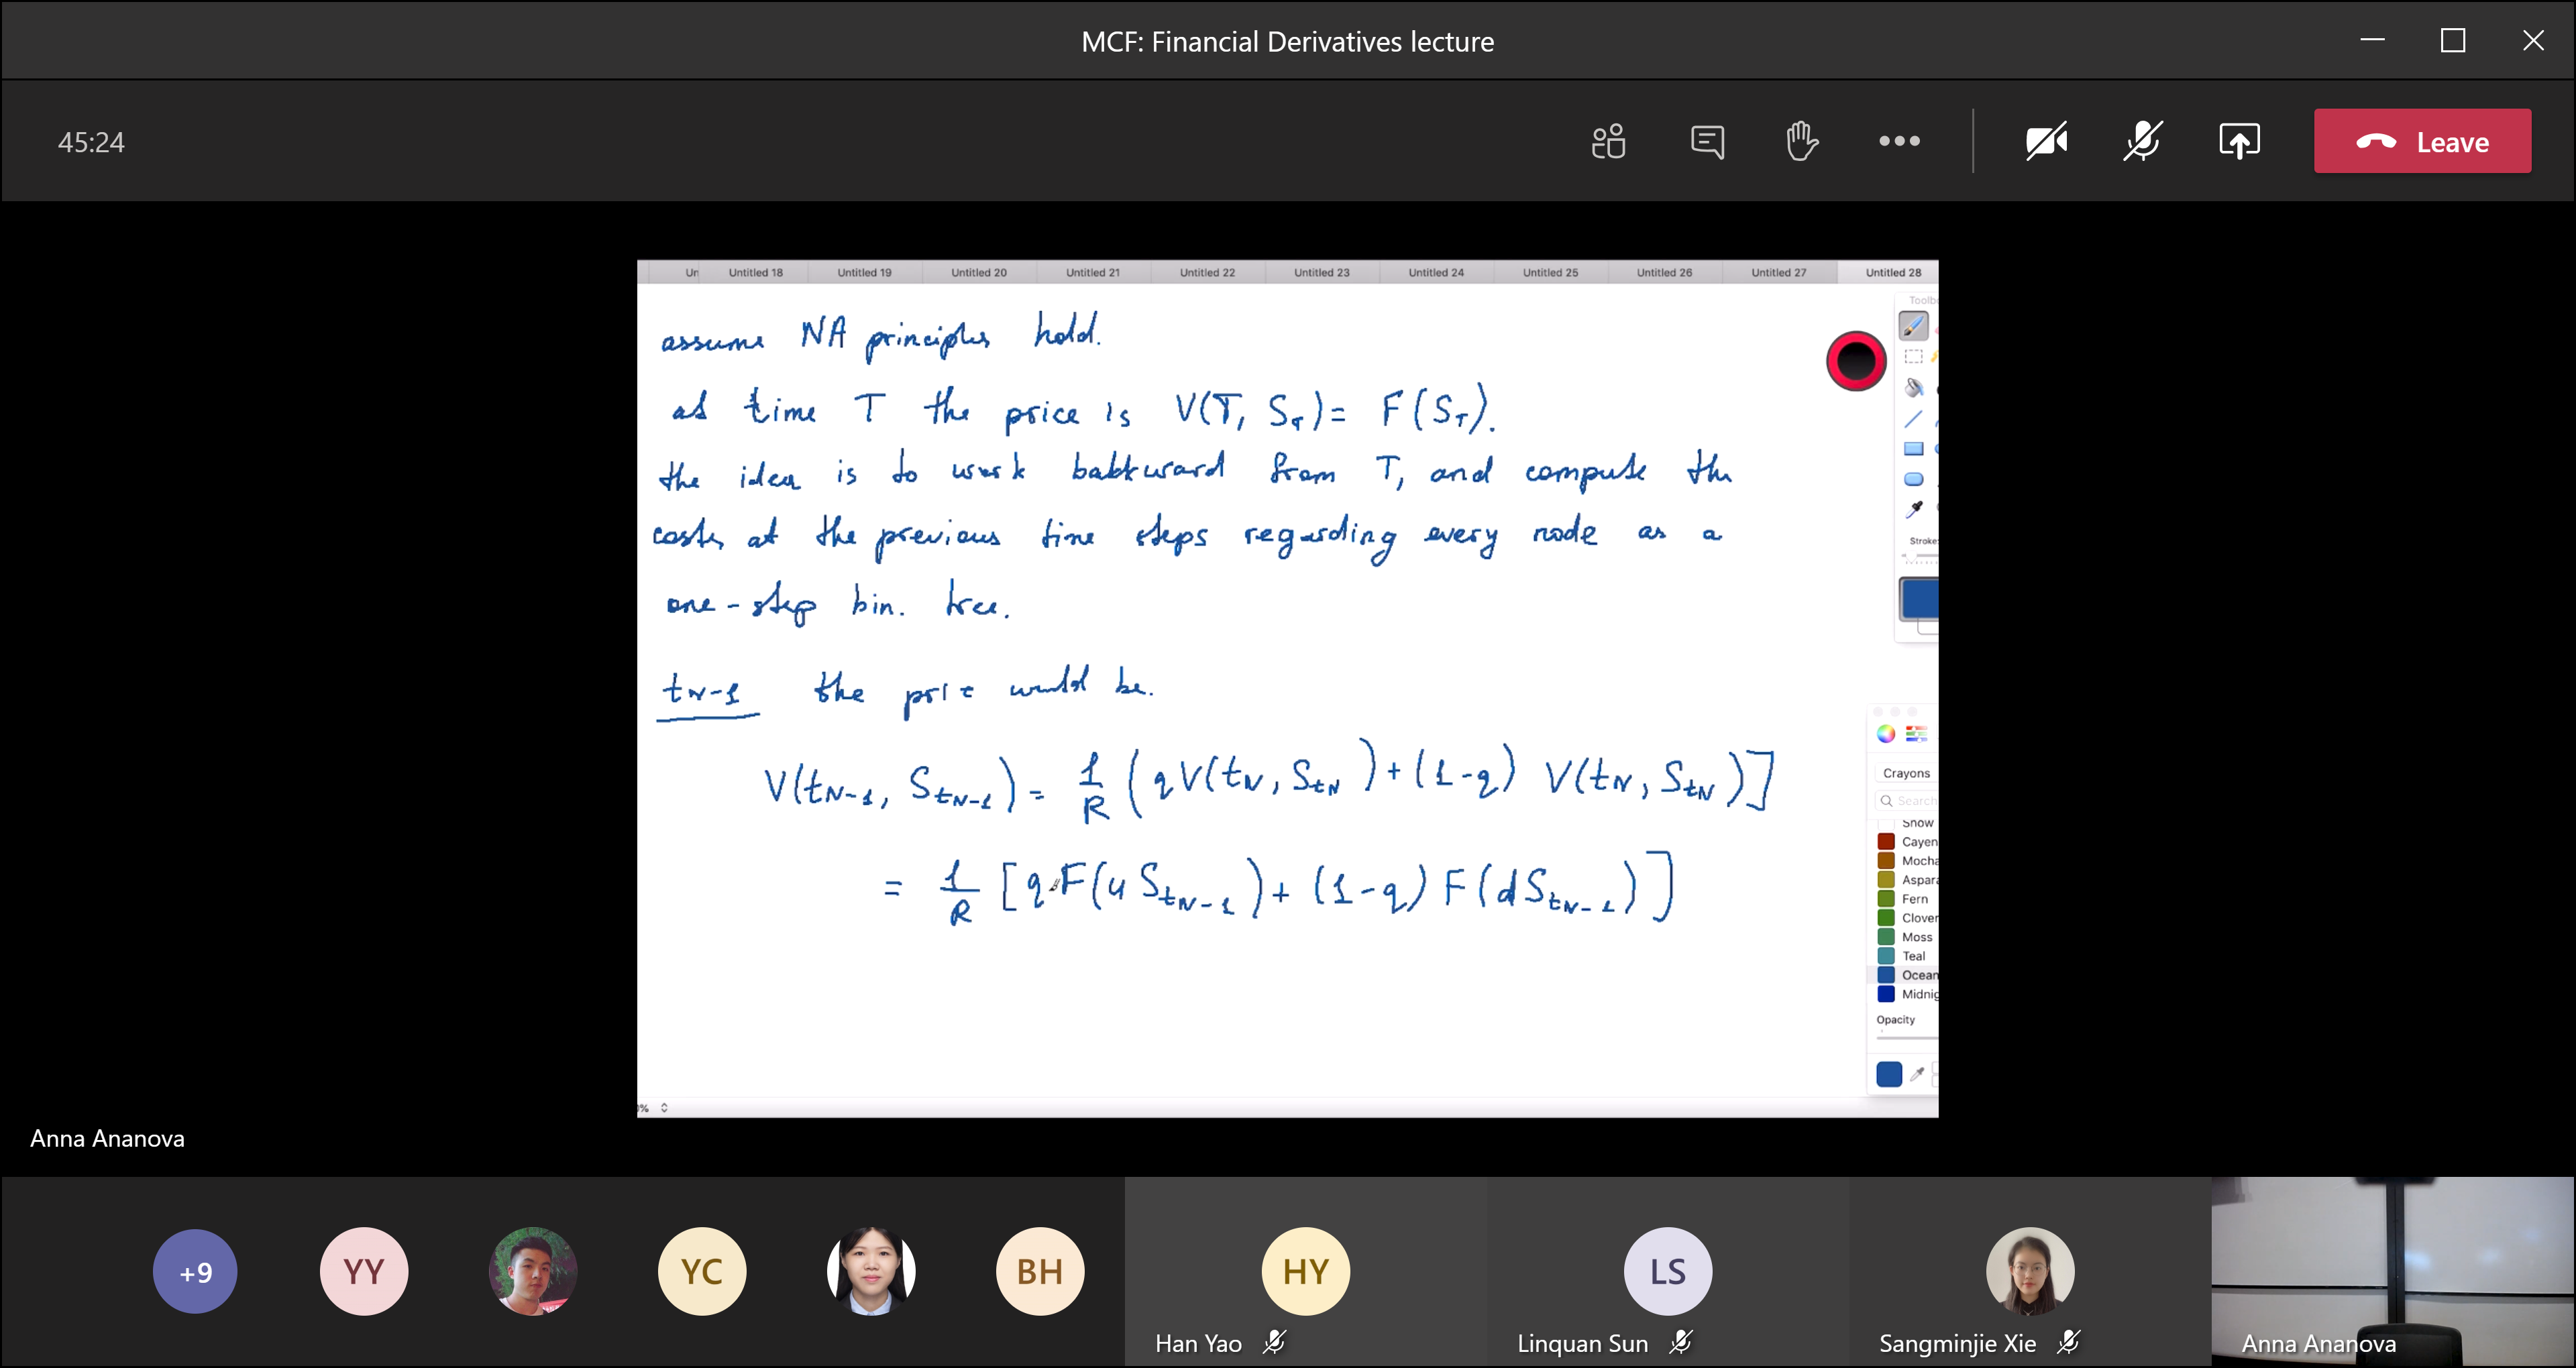 MCF: Financial Derivatives lecture
45:24
Leave
Un Untitled 18 Untitled 19 Untitled 20 Untitled 21 Untitled 22 Untitled 23 Untitled 24 Untitled 25 Untitled 26 Untitled 27 Untitled 28
Toolb
assume NA principles hold.
at time T the price is V(T, S_T) = F(S_T).
the idea is to work backward from T, and compute the
costs at the previous time steps regarding every node as a
one-step bin. tree.
Stroke
t_{N-1} the price would be.
V(t_{N-1}, S_{t_{N-1}}) = 1/R (q V(t_N, S_{t_N}) + (1-q) V(t_N, S_{t_N})]
= 1/R [q·F(u S_{t_{N-1}}) + (1-q) F(d S_{t_{N-1}})]
Crayons
Search
Show
Cayen
Mocha
Aspara
Fern
Clover
Moss
Teal
Ocean
Midnig
Opacity
%
Anna Ananova
+9 YY YC BH HY LS
Han Yao Linquan Sun Sangminjie Xie Anna Ananova